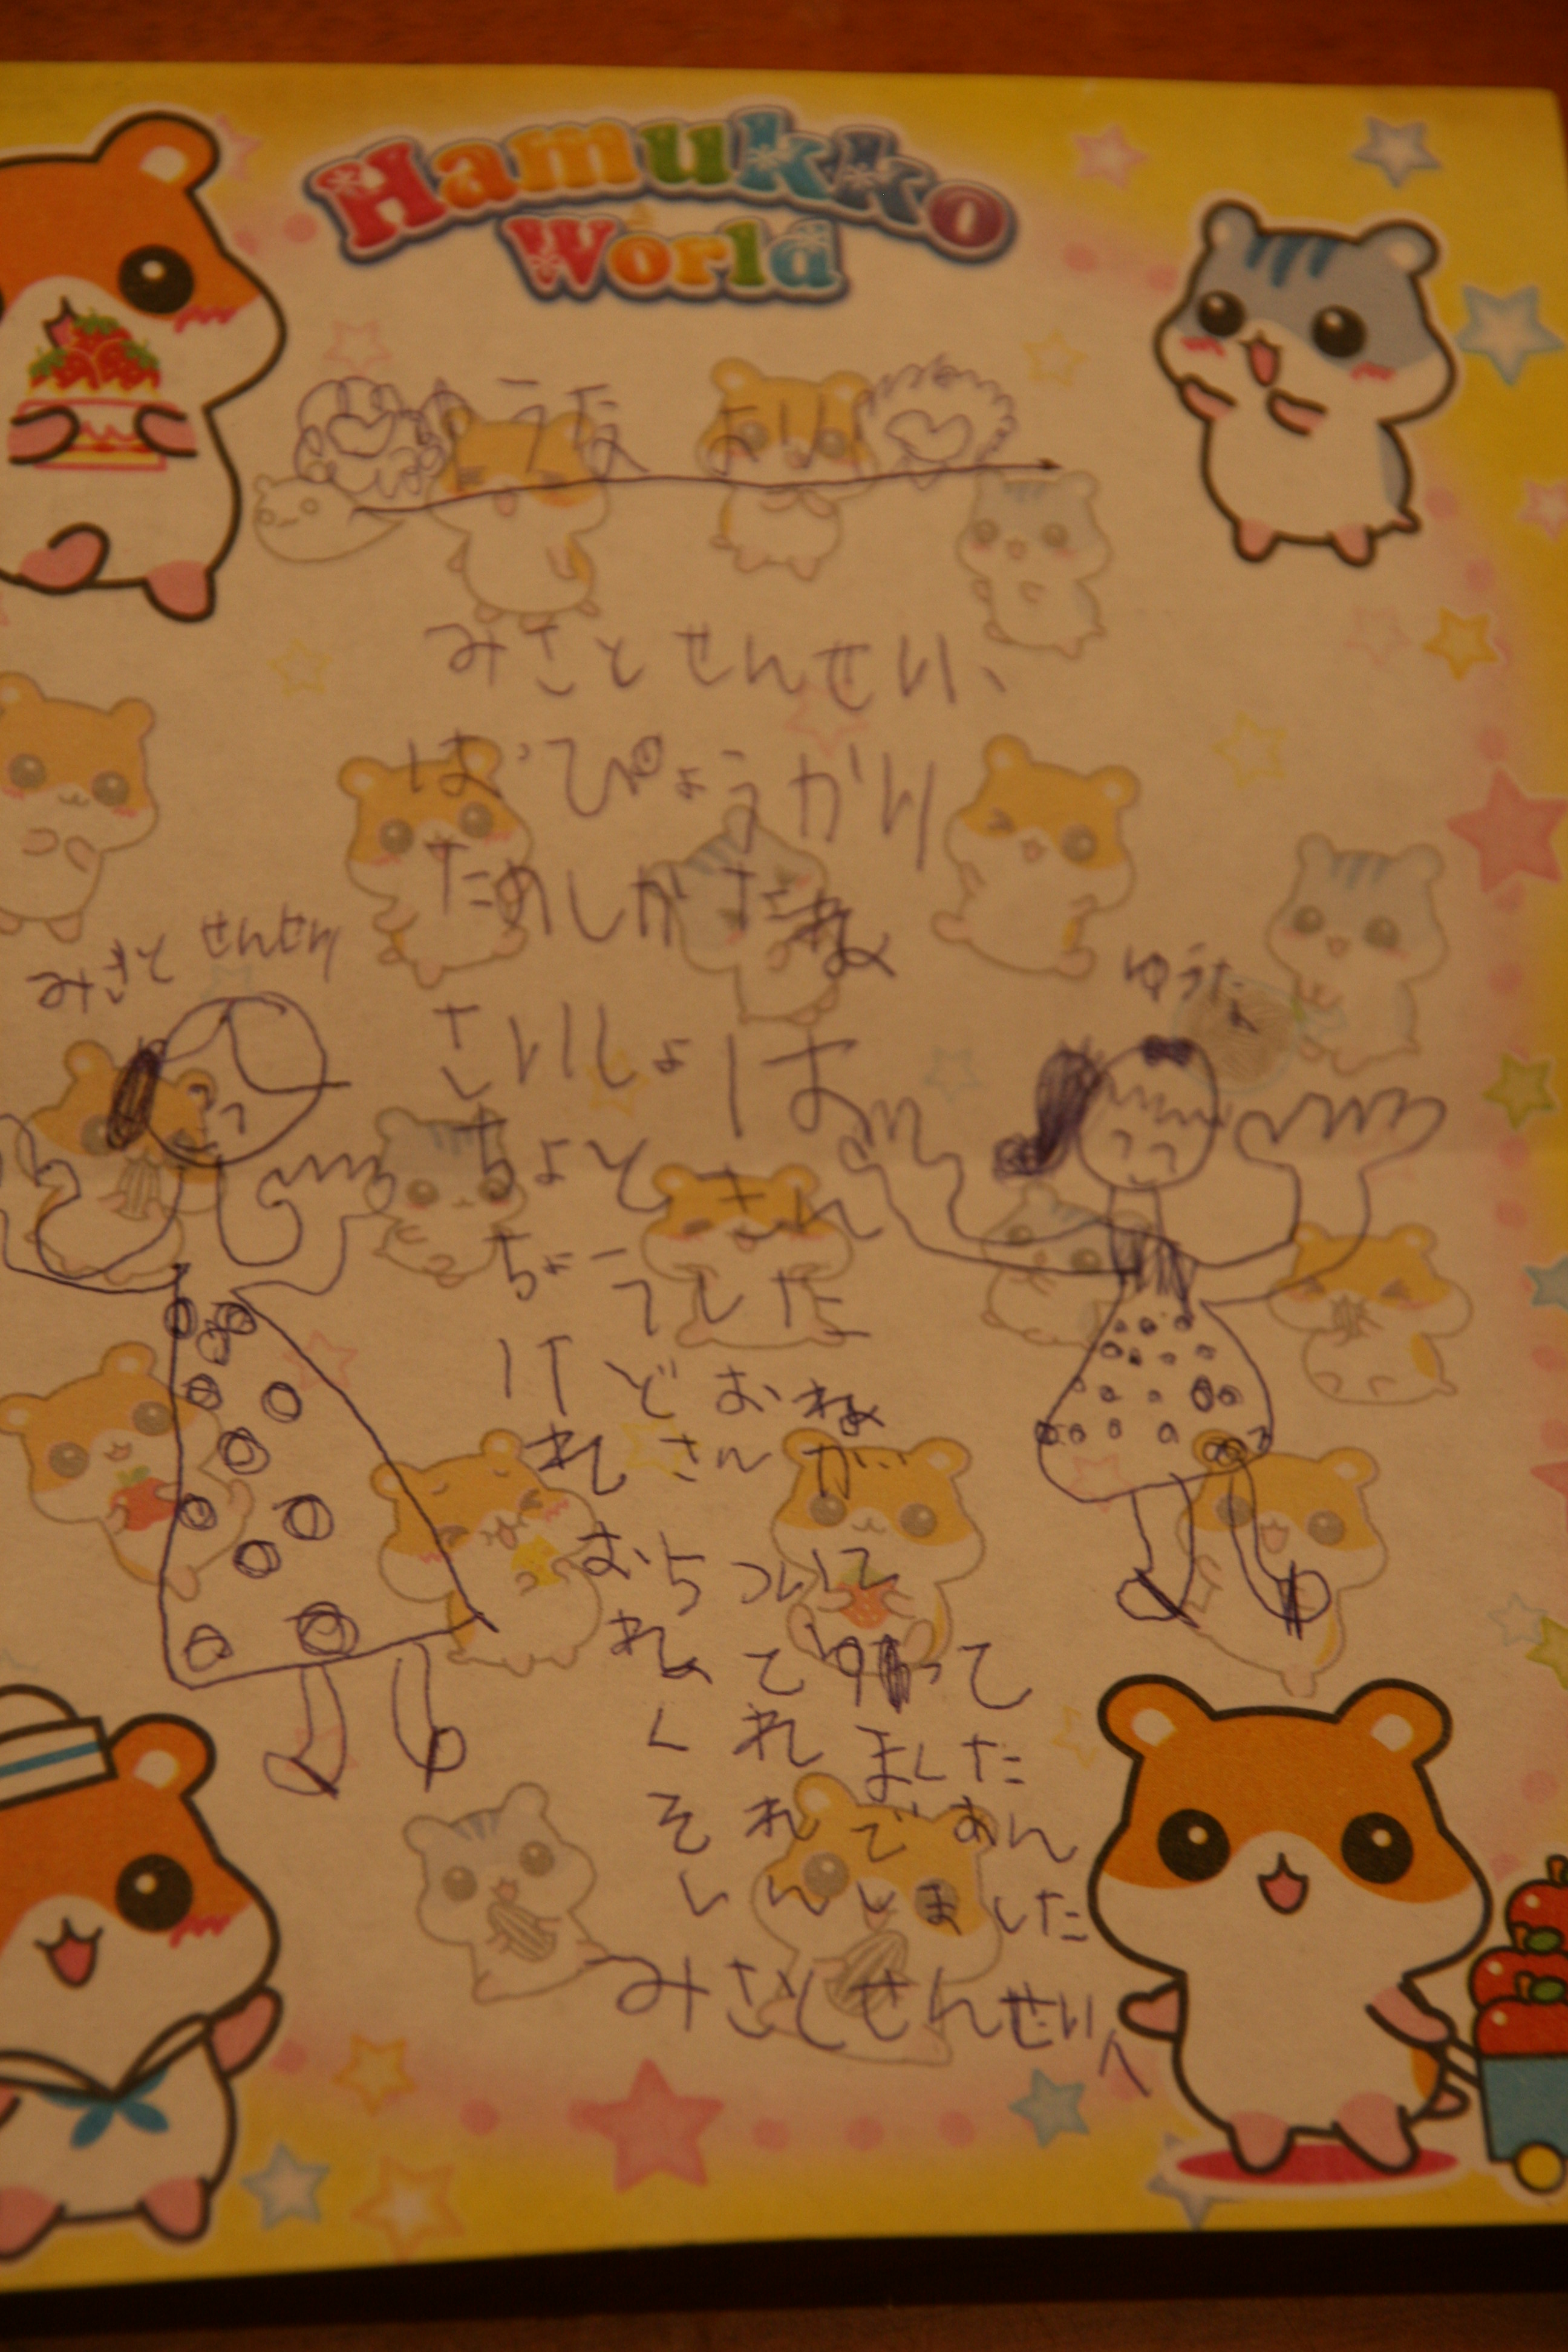 Hamukko
World
ゆうなより
みさとせんせい、
はっぴょうかい
たのしかたね
みさとせんせい
ゆうな
さいしょは
ちょときん
ちょーてした
けどおね
さんが
おちついて
れて
くれました
それであん
しんしました
みさとせんせいへ